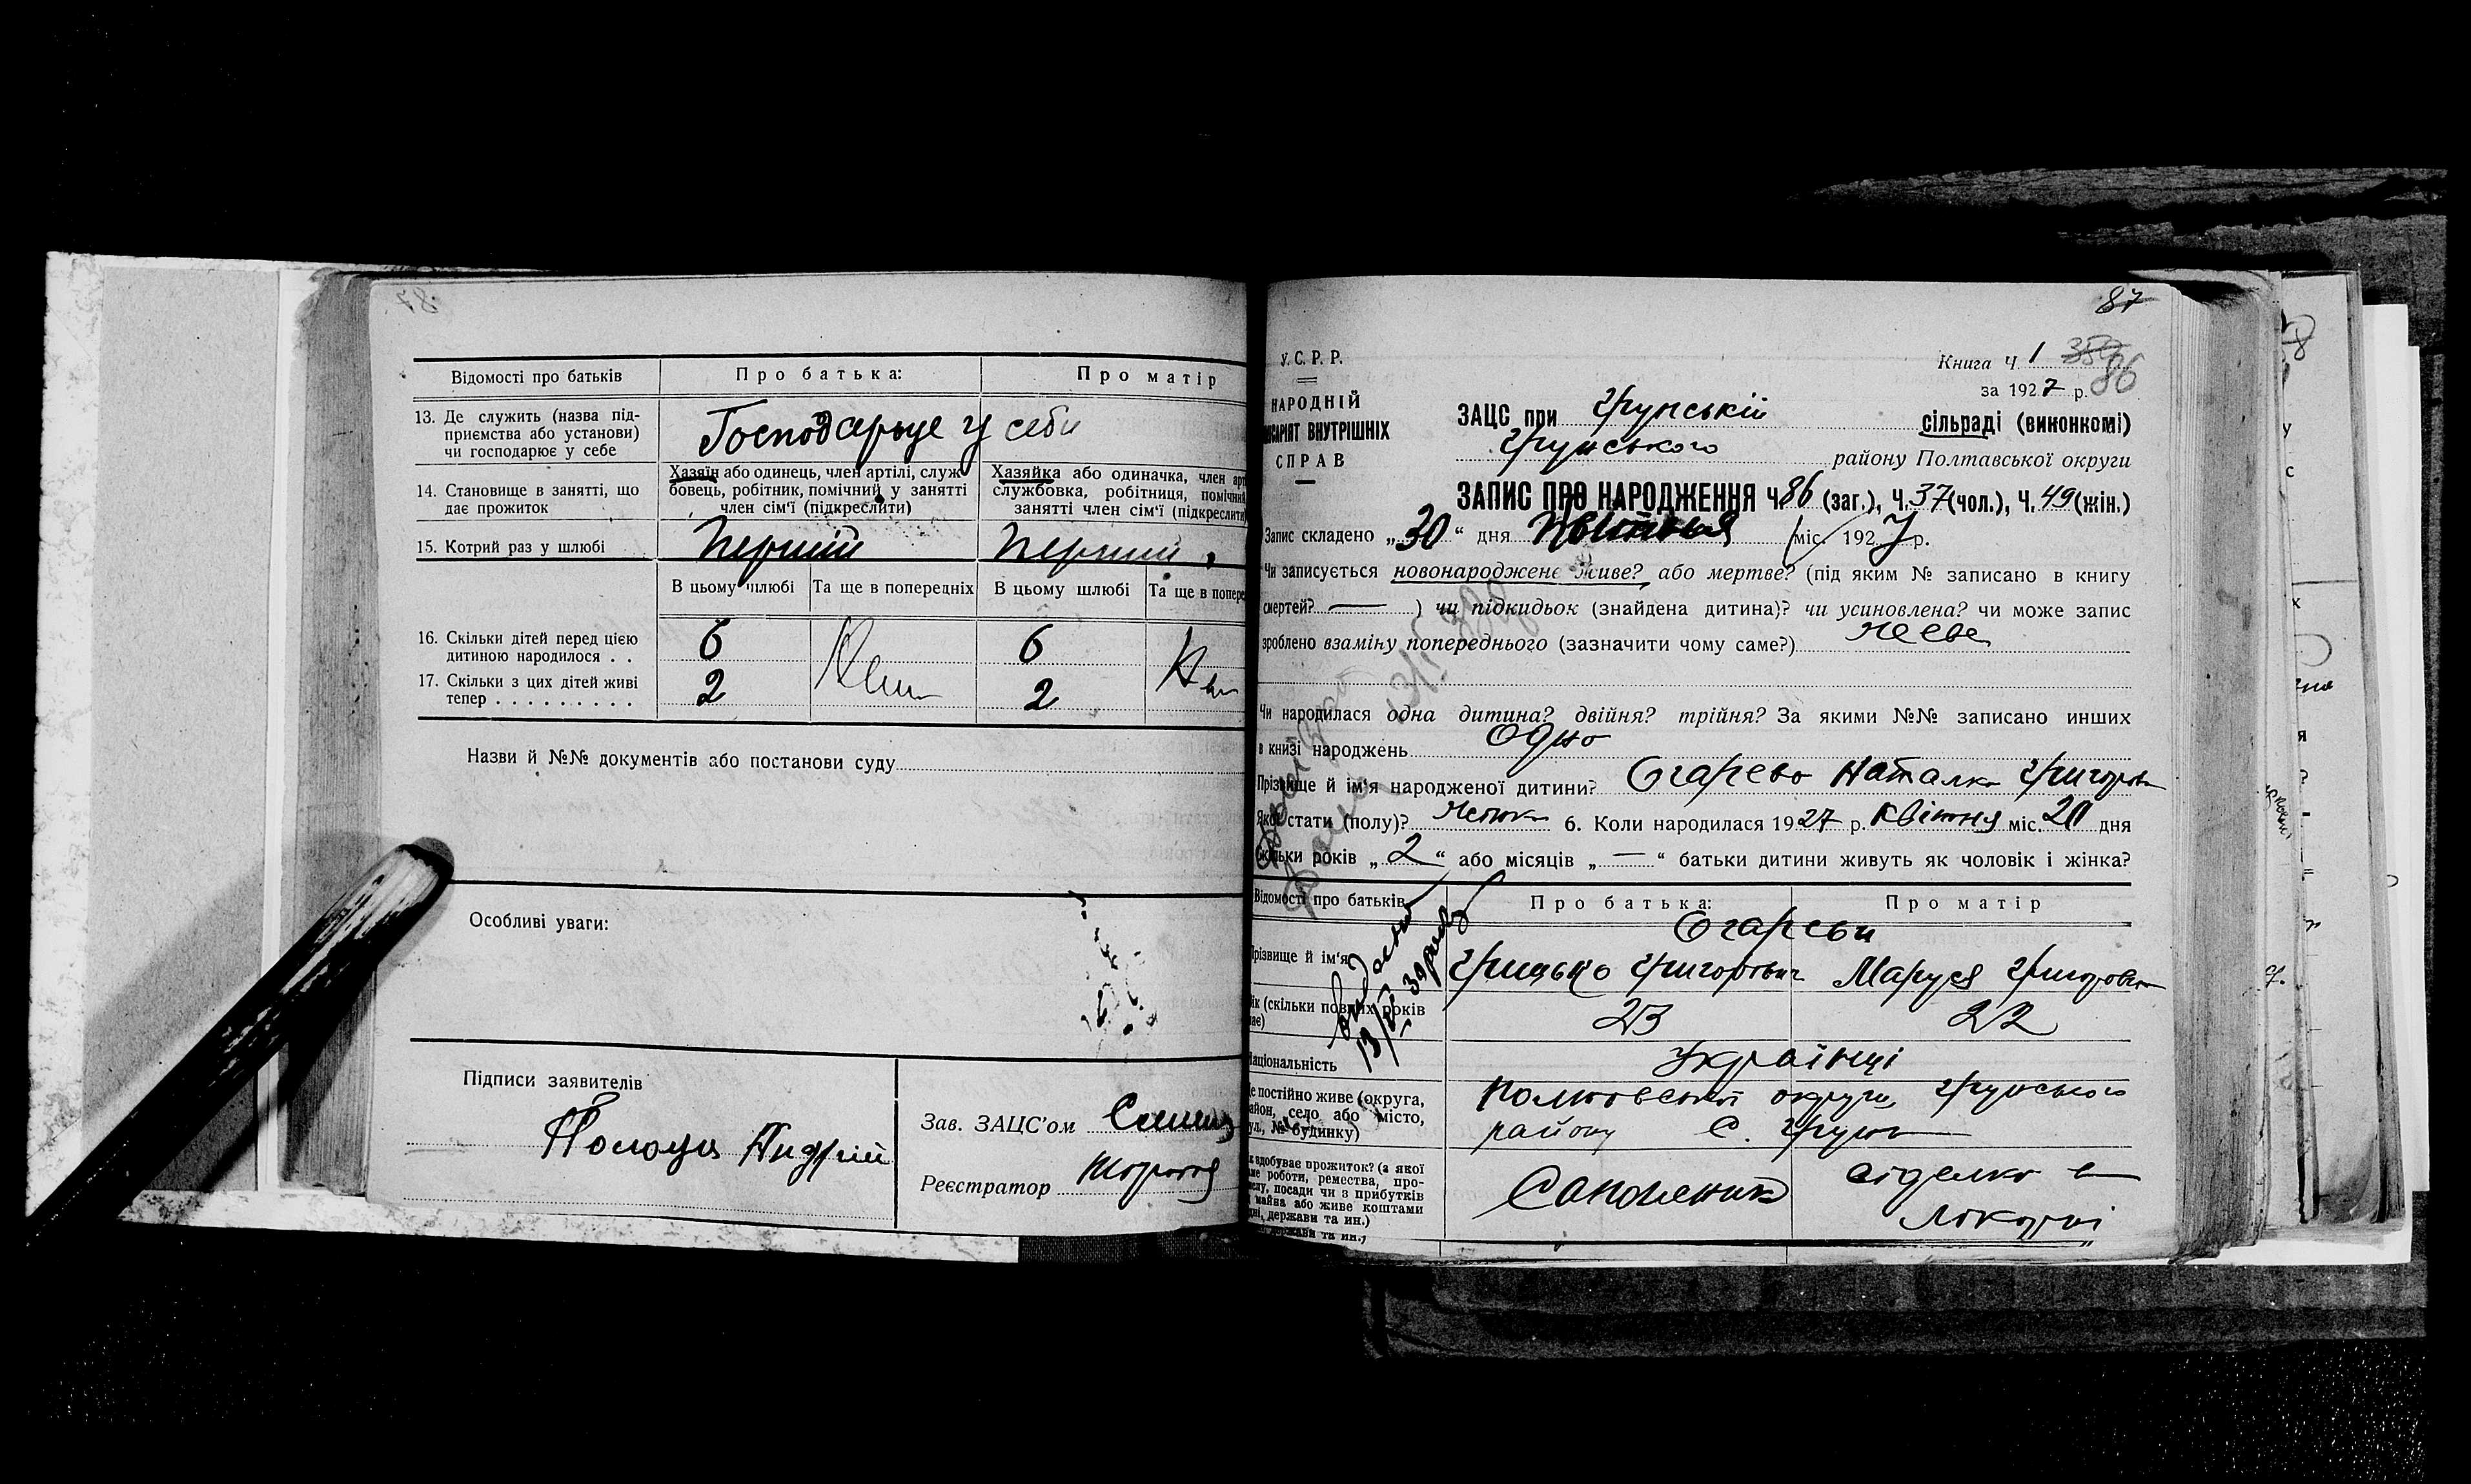 Відомості про батьків
Про батька:
Про матір
13. Де служить (назва під-
приємства або установи)
чи господарює у себе
Господарює у себе
14. Становище в занятті, що
дає прожиток
Хазяїн або одинець, член артілі, служ
бовець, робітник, помічний у занятті
член сім'ї (підкреслити)
Хазяйка або одиначка, член арт
службовка, робітниця, помічни
занятті член сім'ї (підкреслити
15. Котрий раз у шлюбі
Перший
Перший
В цьому шлюбі
Та ще в попередніх
В цьому шлюбі
Та ще в попере
16. Скільки дітей перед цією
дитиною народилося . .
6
6
17. Скільки з цих дітей живі
тепер . . . . . . . . .
2
2
Назви й №№ документів або постанови суду
Особливі уваги:
Підписи заявителів
Андрій
Зав. ЗАЦС'ом
Реєстратор
87
У. С. Р. Р.
НАРОДНІЙ
ВНУТРІШНІХ
СПРАВ
Книга Ч 1 86
за 1927 р.
ЗАЦС при Грунській сільраді (виконкомі)
Грунського району Полтавської округи
ЗАПИС ПРО НАРОДЖЕННЯ Ч. 86 (заг.), Ч. 37 (чол.), Ч. 49 (жін.)
Запис складено „30“ дня Квітня міс. 1927 р.
Чи записується новонароджене живе? або мертве? (під яким № записано в книгу
смертей? — ) чи підкидьок (знайдена дитина)? чи усиновлена? чи може запис
зроблено взаміну попереднього (зазначити чому саме?)
Чи народилася одна дитина? двійня? трійня? За якими №№ записано инших
в книзі народжень Одно
Прізвище й ім'я народженої дитини? Огарєва Наталка Григоров
Якої стати (полу)? 6. Коли народилася 1927 р. Квітня міс. 20 дня
Скільки років „2“ або місяців „—“ батьки дитини живуть як чоловік і жінка?
Відомості про батьків
Про батька:
Про матір
Огарєви
Прізвище й ім'я
Грицько Григорович
Маруся Григоровна
(скільки повних років
має)
23
22
Національність
Українці
Де постійно живе (округа,
район, село або місто,
вул., № будинку)
Полтавської округи, Грунського
району С. Грунь
здобуває прожиток? (з якої
роботи, ремества, про-
посади чи з прибутків
майна або живе коштами
держави та ин.)
держави та ин.)
Сапожник
Сіделка в
Лікарні